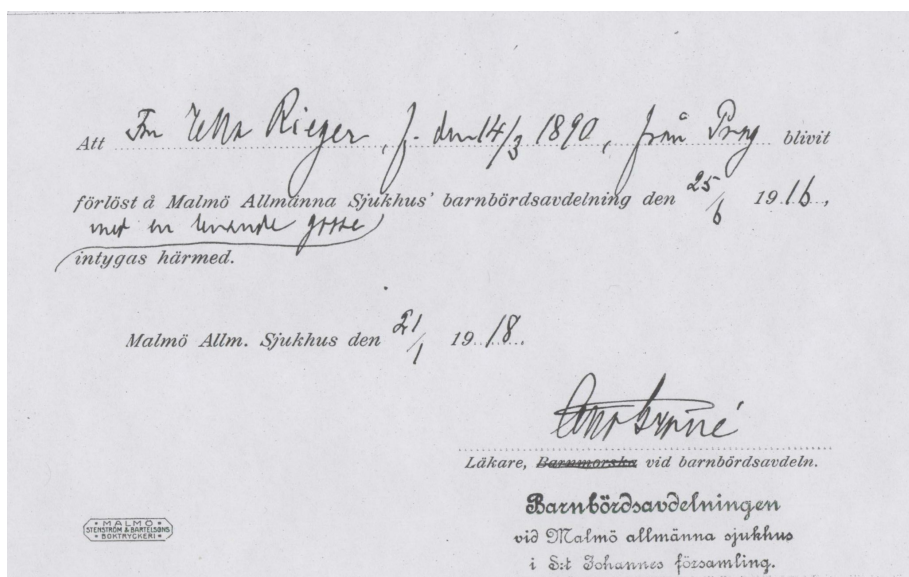 Att Fru Etta Rieger, f. den 14/3 1890, från Prag blivit
förlöst å Malmö Allmänna Sjukhus' barnbördsavdelning den 25/6 1916,
med en levande gosse
intygas härmed.
Malmö Allm. Sjukhus den 21/1 1918.
Otto Gröné
Läkare, Barnmorska vid barnbördsavdeln.
Barnbördsavdelningen
vid Malmö allmänna sjukhus
i S:t Johannes församling.
• MALMÖ •
STENSTRÖM & BARTELSONS
• BOKTRYCKERI •